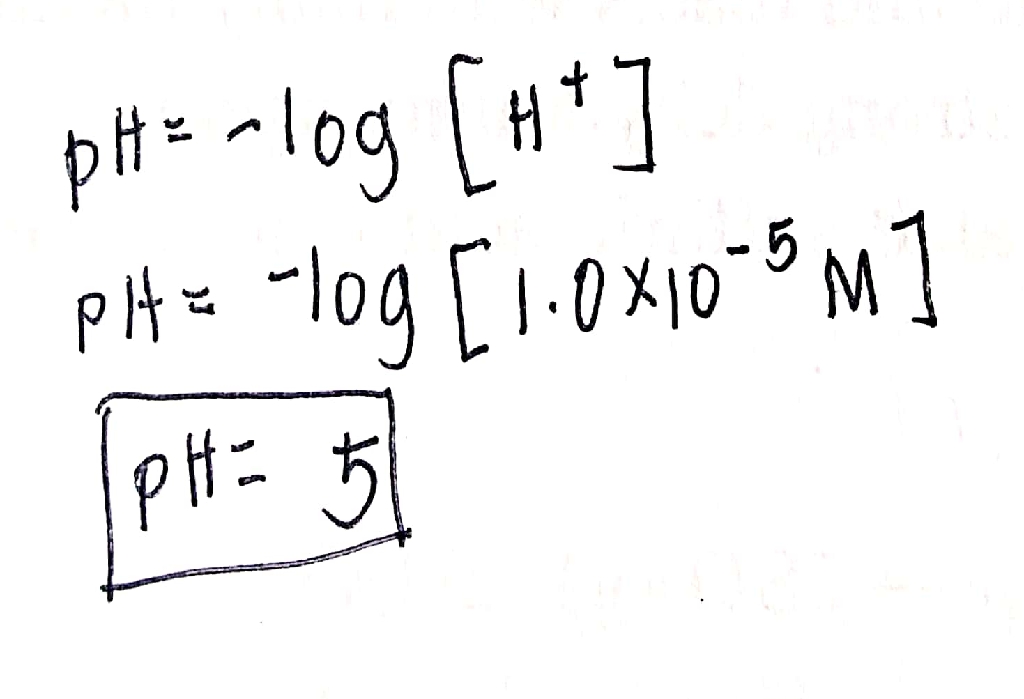 pH = -log [H⁺]
pH = -log [1.0x10⁻⁵ M]
pH = 5